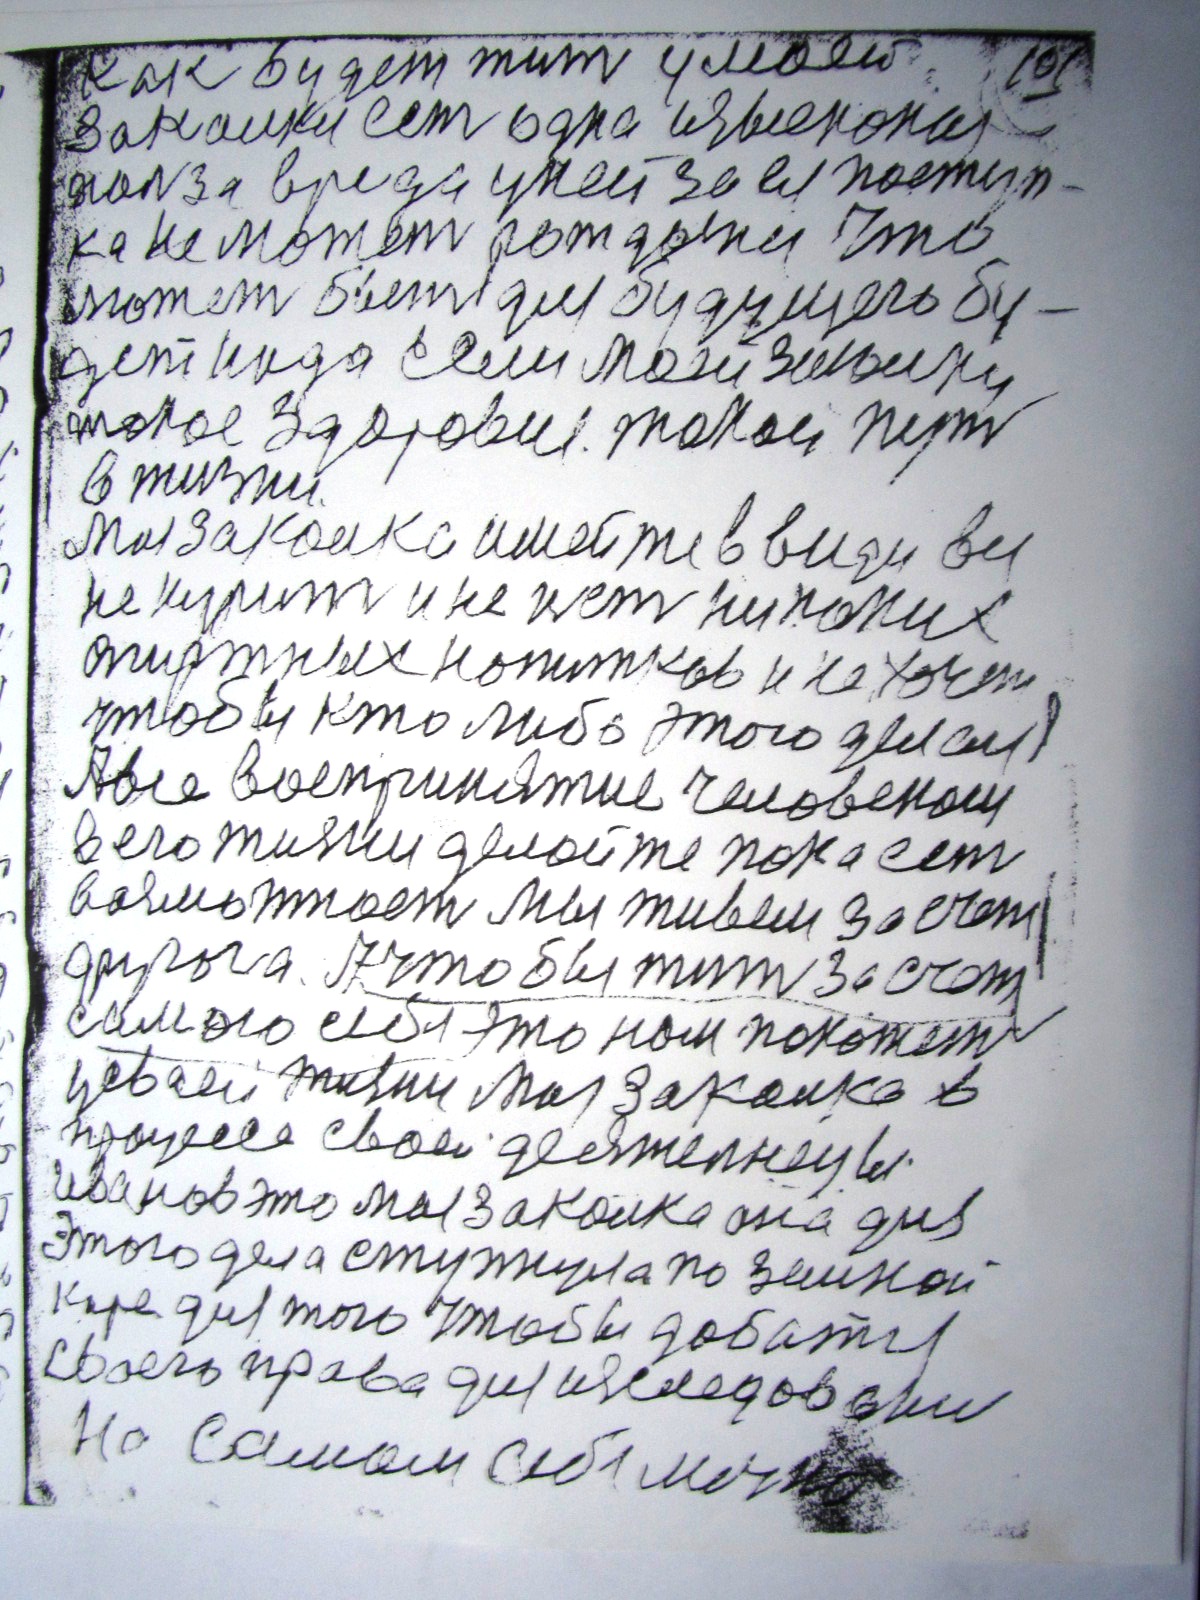 как будет жит у моей 101
закалки ест одна изьменоная
полза вреда у ней за ея поступ-
ка не может рождатни что
может быт для будущего бу-
дет када если моей закалки
такое здоровие. такой пут
в жизни.
Моя закалка имейте в виду вы
не курит и не пет ниаких
спиртных напитков и не хочет
чтобы кто либо этого делал
А все воспринятие человеком
в его жизни делайте пока ест
возможност мы живем за счет
другога. А чтобы жит за счот
самого себя это нам покожет
усваей жизни Моя закалка в
процессе своей деятелнсу вы.
Иванов это моя закалка она для
этого дела стужнула по земной
каре для того чтобы добатия
своего права для изследовани
На самом себя лично